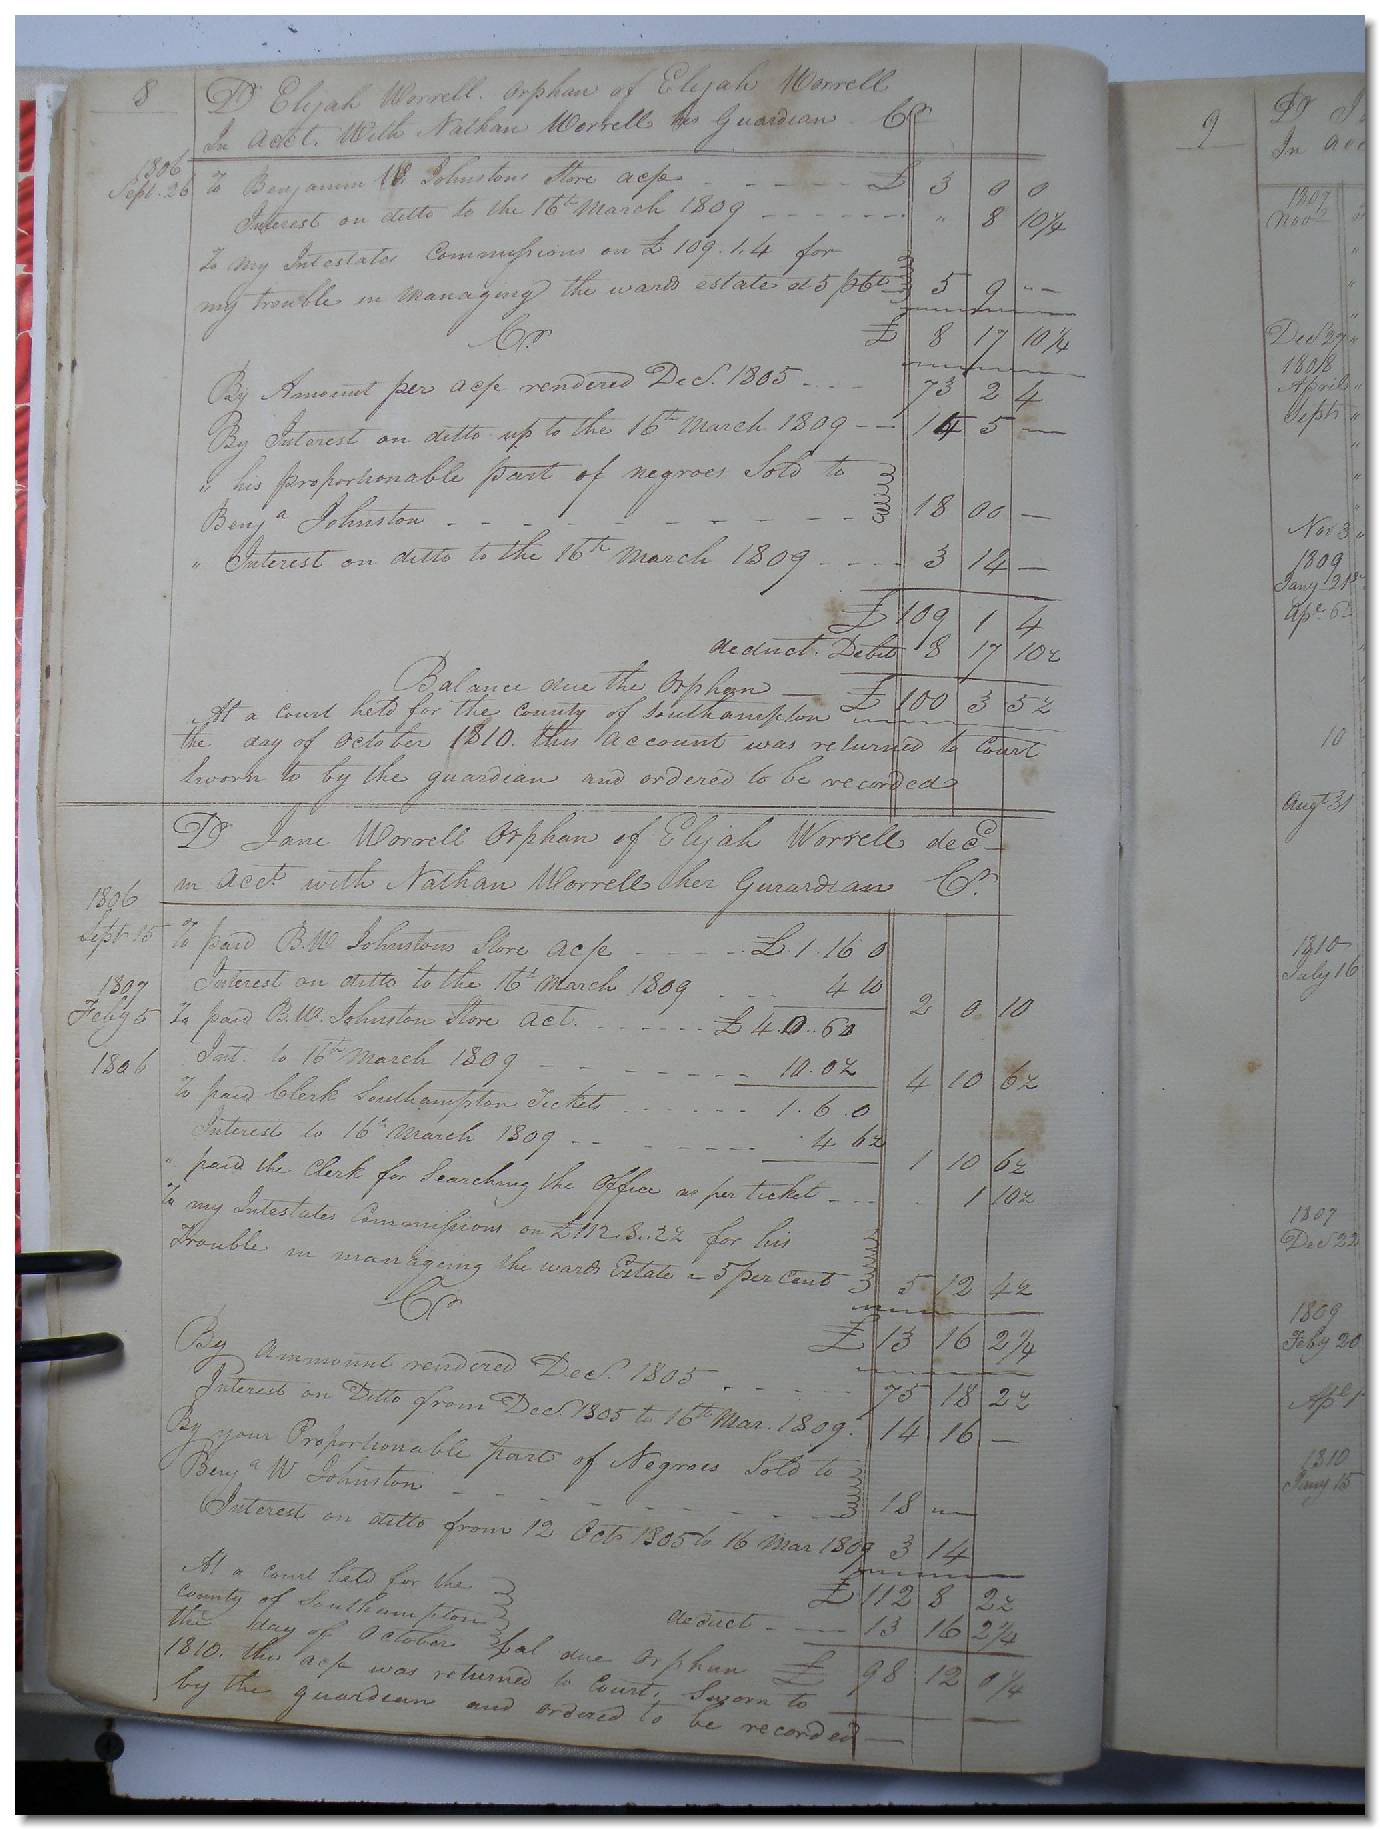 8
Dr Elijah Worrell. Orphan of Elijah Worrell
In Acct. With Nathan Worrell his Guardian Cr
1806
Sept. 26 To Benjamin W. Johnstons Store acp - - - - - £ 3 0 0
Interest on ditto to the 16th March 1809 - - - - - - " 8 10¼
To my Intestates Commissions on £109.1.4 for
my trouble in Managing the wards estate at 5 pCt 5 9 " —
Cr £ 8 17 10¼
By Amount per acp rendered Dec. 1805 - - - 73 2 4
By Interest on ditto up to the 16th March 1809 - - 14 5 —
" his proportionable part of negroes Sold to
Benja Johnston - - - - - - - - - 18 00 —
" Interest on ditto to the 16th March 1809 - - - - 3 14 —
£ 109 1 4
deduct. Debit 8 17 10½
Balance due the Orphan — £ 100 3 5½
At a court held for the county of Southampton
the day of October 1810. this account was returned to Court
Sworn to by the guardian and ordered to be recorded
Dr Jane Worrell Orphan of Elijah Worrell decd
in Acct with Nathan Worrell her Gurardian Cr.
1806
Sept 15 To paid B.W Johnstons Store acp - - - - £.1.16 0
Interest on ditto to the 16th March 1809 - - - 4 10 2 0 10
1807
Feby 5 To paid B.W. Johnston Store act. - - - - - £ 4.0..6½
Int. to 16th March 1809 - - - - - - 10.0½ 4 10 6½
1806 To paid Clerk Southampton Tickets - - - - - - 1.6.0
Interest to 16th March 1809 - - - - - - 4 6½ 1 10 6½
" paid the Clerk for Searching the Office as per ticket - - - . 1 10½
To my Intestates Commissions on £112.8..2½ for his
Trouble in managing the wards Estate a 5 per Cent 5 12 4½
Cr £ 13 16 2¼
By Ammount rendered Dec. 1805 - - - - - 75 18 2½
Interest on Ditto from Dec. 1805 to 16th Mar. 1809. 14 16 —
By your Proportionable part of Negroes Sold to
Benja W Johnston - - - - - - - - - 18 " —
Interest on ditto from 12 Octo 1805 to 16 Mar 1809 3 14
£ 112 8 2½
deduct - - - 13 16 2¼
bal due Orphan £ 98 12 0¼
At a court held for the
county of Southampton
the day of October
1810. this acp was returned to Court, Sworn to
by the guardian and ordered to be recorded —
9
Dr
In acc
1807
Novr
Dec 27
1808
April
Sept
Nov 3
1809
Jany 21st
Apl 6
10
Augt 31
1810
July 16
1807
Dec 22
1809
Feby 20
Apl 1
1810
Jany 15